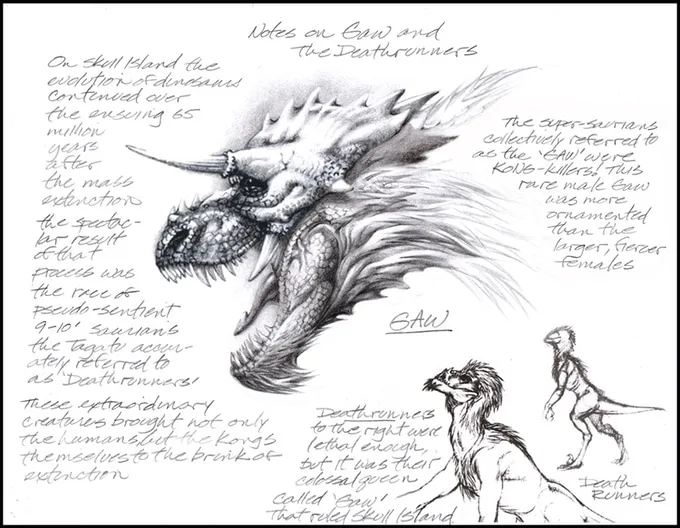 Notes on Gaw and
the Deathrunners
On Skull Island the
evolution of dinosaurs
continued over
the ensuing 65
million
years
after
the mass
extinction
the spectac-
lar result
of that
process was
the race of
pseudo-sentient
9-10' saurians
the Tagatu accur-
ately referred to
as 'Deathrunners'
These extraordinary
creatures brought not only
the humans, but the Kongs
themselves to the brink of
extinction
The super-saurians
collectively referred to
as the 'GAW' were
KONG-killers. This
rare male Gaw
was more
ornamented
than the
larger, fiercer
females
GAW
Deathrunners
to the right were
lethal enough,
but it was their
colossal queen
called 'Gaw'
that ruled Skull Island
Death
Runners